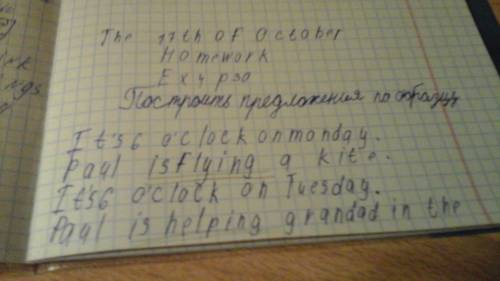 The 17th of October
Homework
Ex 4 p30
Построить предложения по образцу
It's 6 o'clock on monday.
Paul is flying a kite.
It's 6 o'clock on Tuesday.
Paul is helping grandad in the